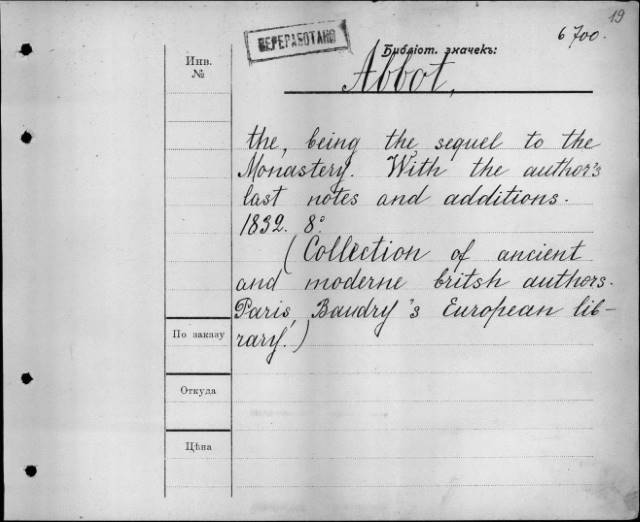 19
6700.
ПЕРЕРАБОТАНО
Библіот. значекъ:
Инв.
№
Abbot,
the, being the sequel to the
Monastery. With the author's
last notes and additions.
1832. 8°
(Collection of ancient
and moderne britsh authors.
Paris, Baudry's European lib-
rary.)
По заказу
Откуда
Цѣна